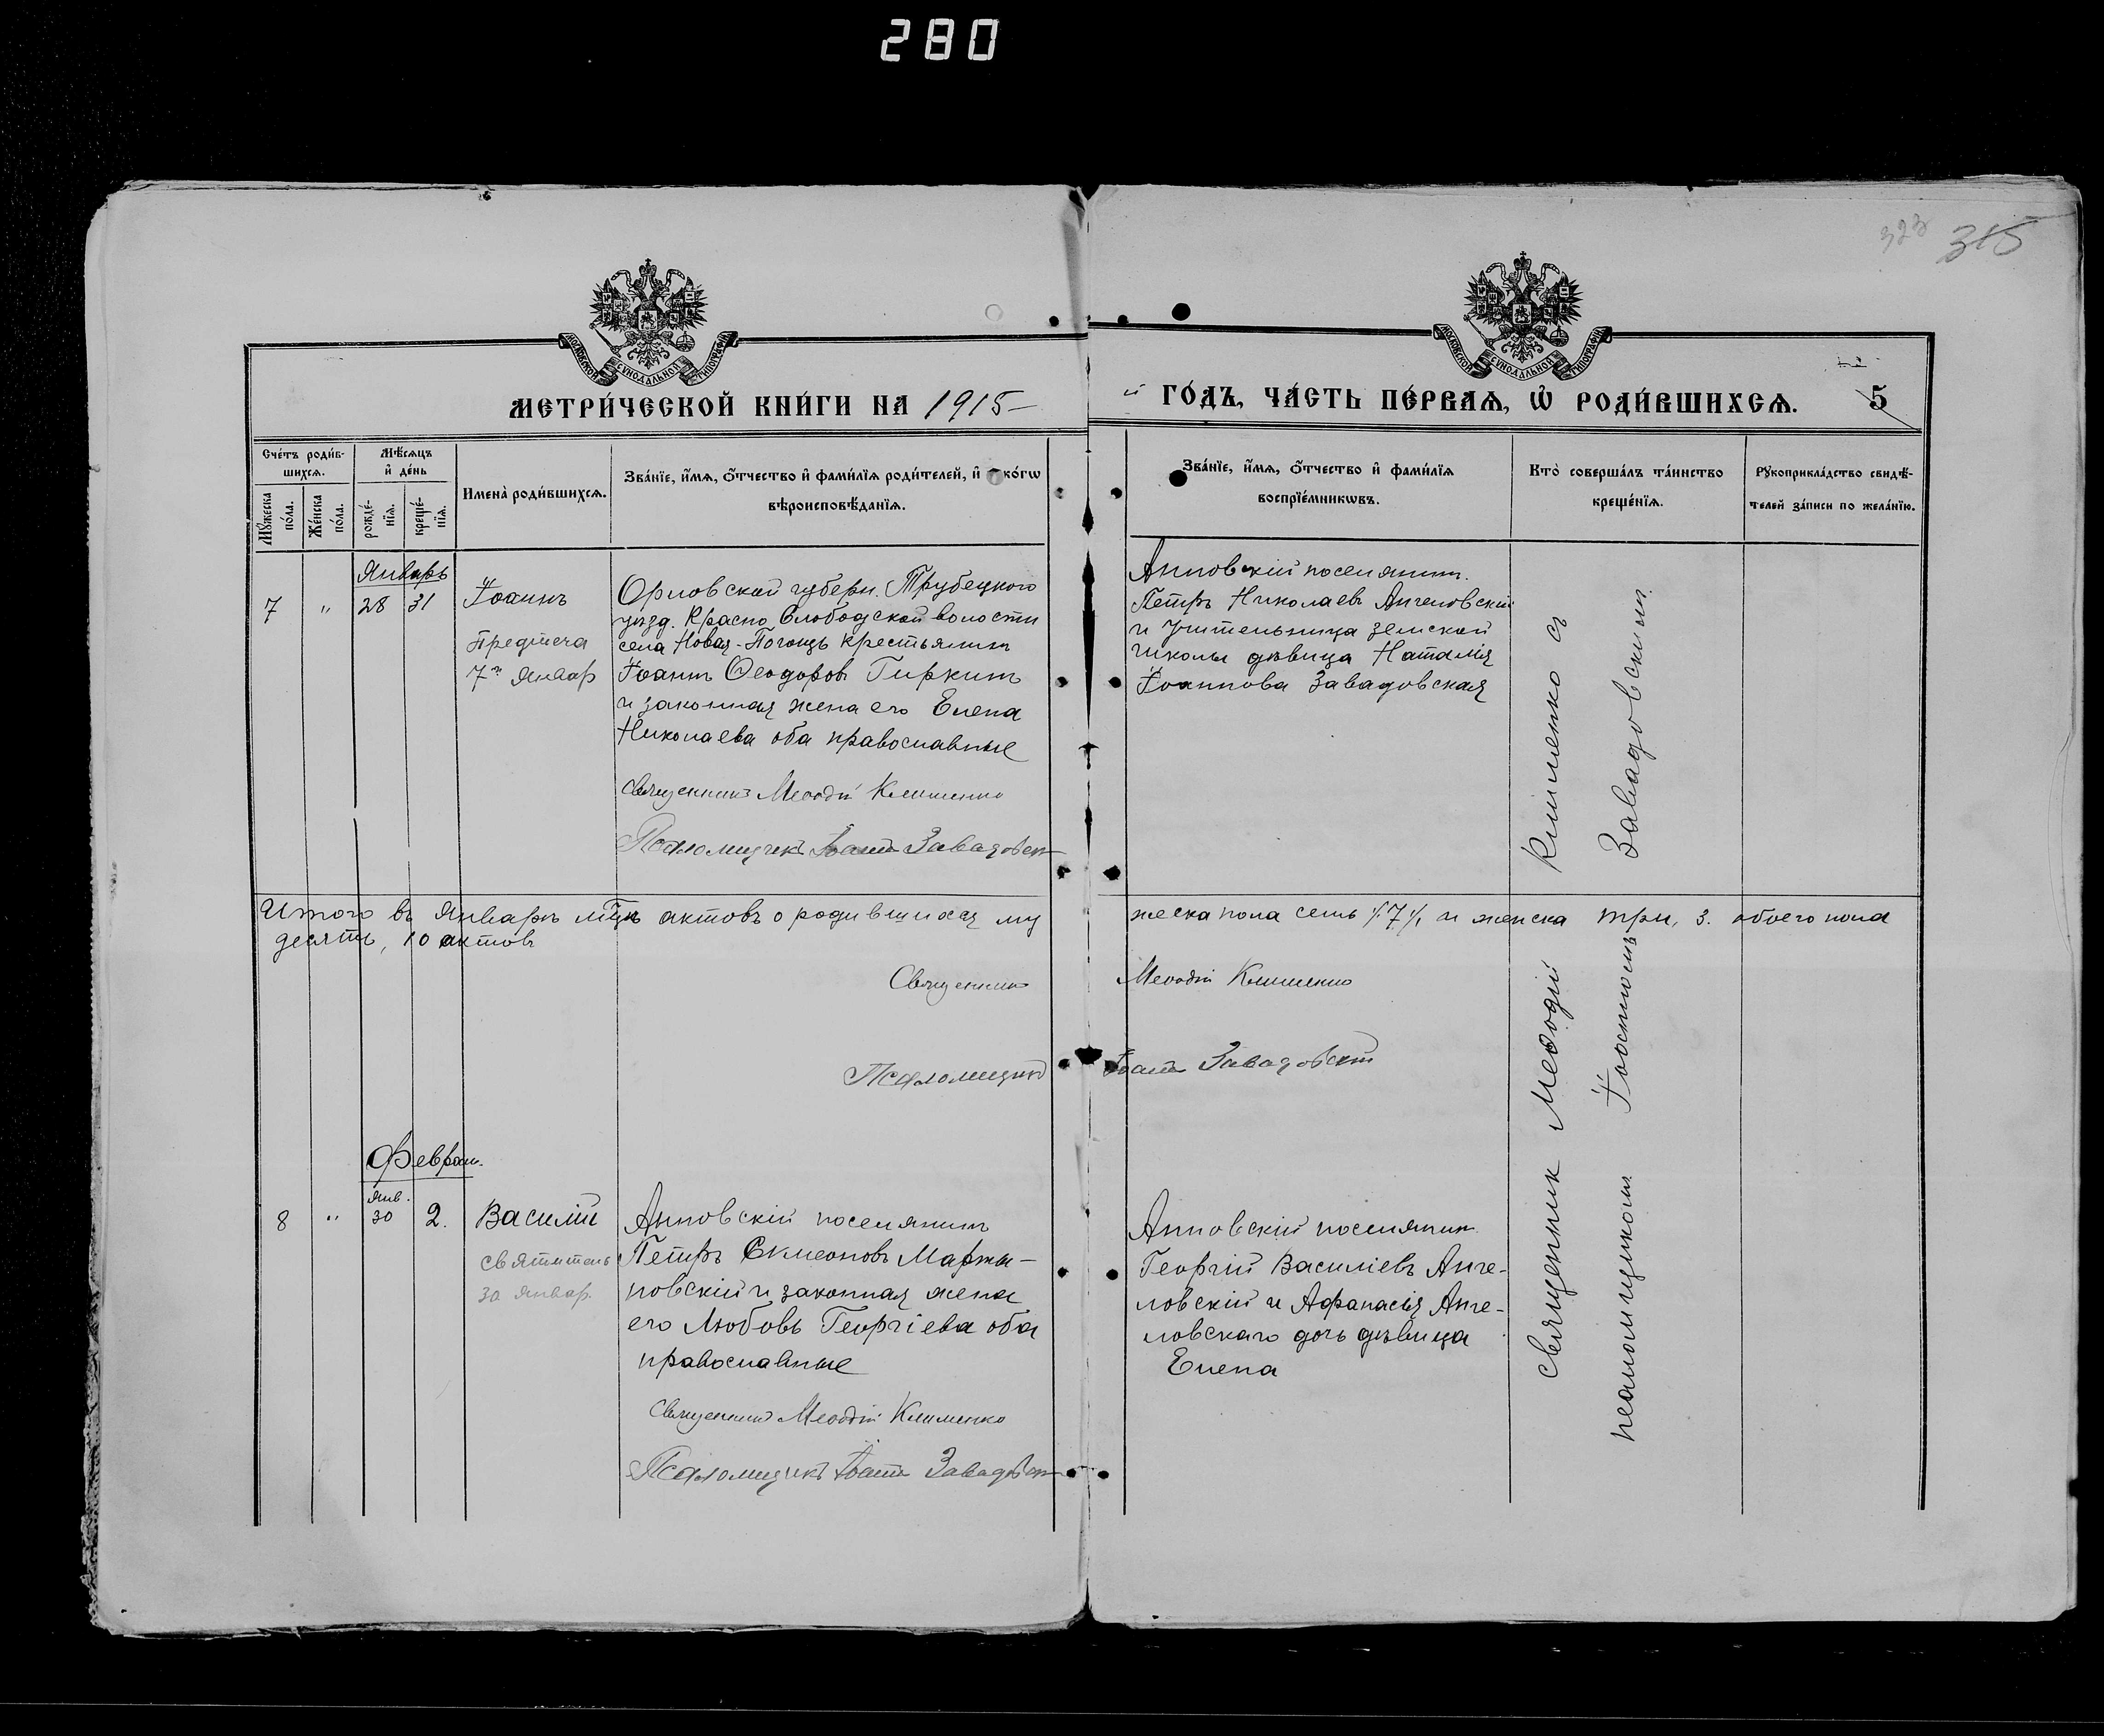 280
323 315
МОСКОВСКОЙ СѴНОДАЛЬНОЙ ТИПОГРАФІИ
МОСКОВСКОЙ СѴНОДАЛЬНОЙ ТИПОГРАФІИ
МЕТРИ́ЧЕСКОЙ КНИ́ГИ НА 1915-
й ГО́ДЪ, ЧА́СТЬ ПЕ́РВАѦ, Ѡ҆ РОДИ́ВШИХСѦ. 5
Сче́тъ роди́в-
шихсѧ.
Мѣ́сѧцъ
и҆ де́нь
Мꙋ́жеска
по́ла.
Же́нска
по́ла.
рожде́-
нїѧ.
креще́-
нїѧ.
Имена̀ роди́вшихсѧ.
Зва́нїе, и҆́мѧ, о҆́тчество и҆ фами́лїѧ роди́телей, и҆ ко́гѡ
вѣроисповѣ́данїѧ.
Зва́нїе, и҆́мѧ, о҆́тчество и҆ фами́лїѧ
воспрїе́мникѡвъ.
Кто̀ соверша́лъ та́инство
креще́нїѧ.
Рꙋкоприкла́дство свидѣ́-
телей за́писи по жела́нїю.
Январь
7 " 28 31
Іоаннъ
Предтеча
7го Январ
Орловской губерн. Трубецкого
уѣзд. Красно Слободской волости
села Новая-Погощь крестьянинъ
Іоаннъ Ѳеодоровъ Гиркинъ
и законная жена его Елена
Николаева оба православные
Священникъ Меѳодій Клименко
Псаломщикъ Іоаннъ Завадовск
Анновскій поселянинъ
Петръ Николаевъ Ангеловскій
и учительница земской
школы дѣвица Наталія
Іоаннова Завадовская
Итого въ Январѣ мцѣ актовъ о родившихся му
жеска пола семь /.7./, и женска три, 3. обоего пола
десять, 10 актовъ
Священникъ Меѳодій Клименко
Псаломщикъ Іоаннъ Завадовскій
Феврал.
8 " Янв. 30 2.
Василій
святитель
30 Январ.
Анновскій поселянинъ
Петръ Симеоновъ Марты-
новскій и законная жена
его Любовь Георгіева оба
православные
Священникъ Меѳодій Клименко
Псаломщикъ Іоаннъ Завадовск
Анновскій поселянинъ
Георгій Василіевъ Анге-
ловскій и Афанасія Анге-
ловскаго дочь дѣвица
Елена
Священник Меѳодій Клименко съ
псаломщикомъ Іоанномъ Завадовскимъ